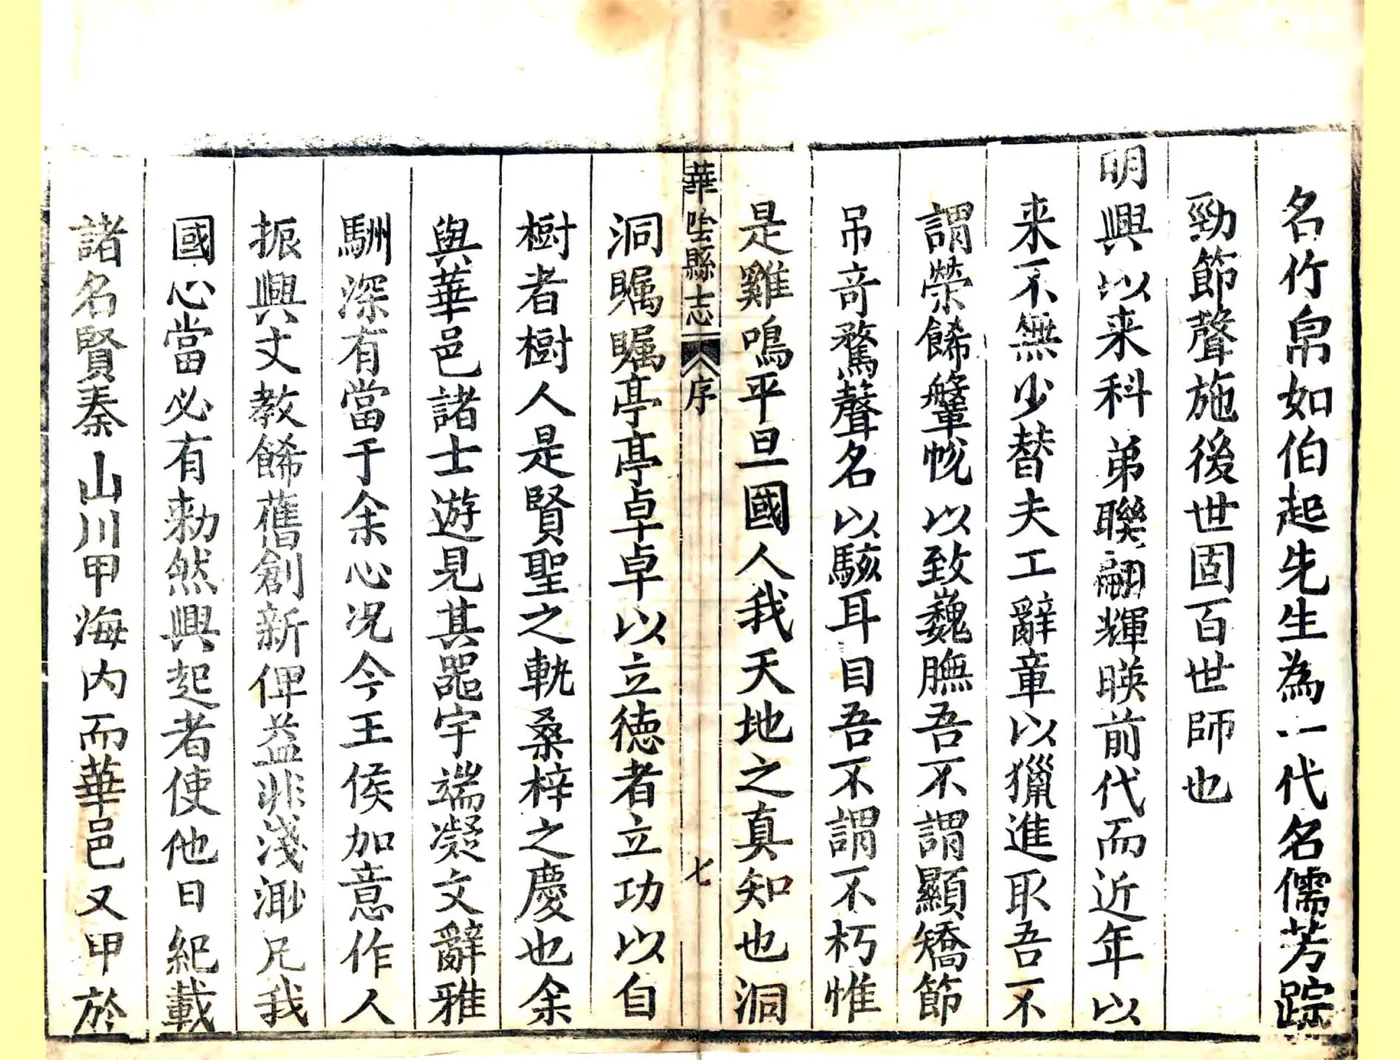 名竹帛如伯起先生為一代名儒芳踪
勁節聲施後世固百世師也
明興以来科弟聯翩輝暎前代而近年以
来不無少替夫工辭章以獵進取吾不
謂榮餙鞶帨以致巍膴吾不謂顯矯節
吊竒騖聲名以駭耳目吾不謂不朽惟
是雞鳴平旦國人我天地之真知也洞
華陰縣志 序 七
洞矚矚亭亭卓卓以立徳者立功以自
樹者樹人是賢聖之軌桑梓之慶也余
與華邑諸士遊見其噐宇端凝文辭雅
馴深有當于余心况今王侯加意作人
振興文教餙舊創新俾益非淺渺兄我
國心當必有勃然興起者使他日紀載
諸名賢秦山川甲海内而華邑又甲於